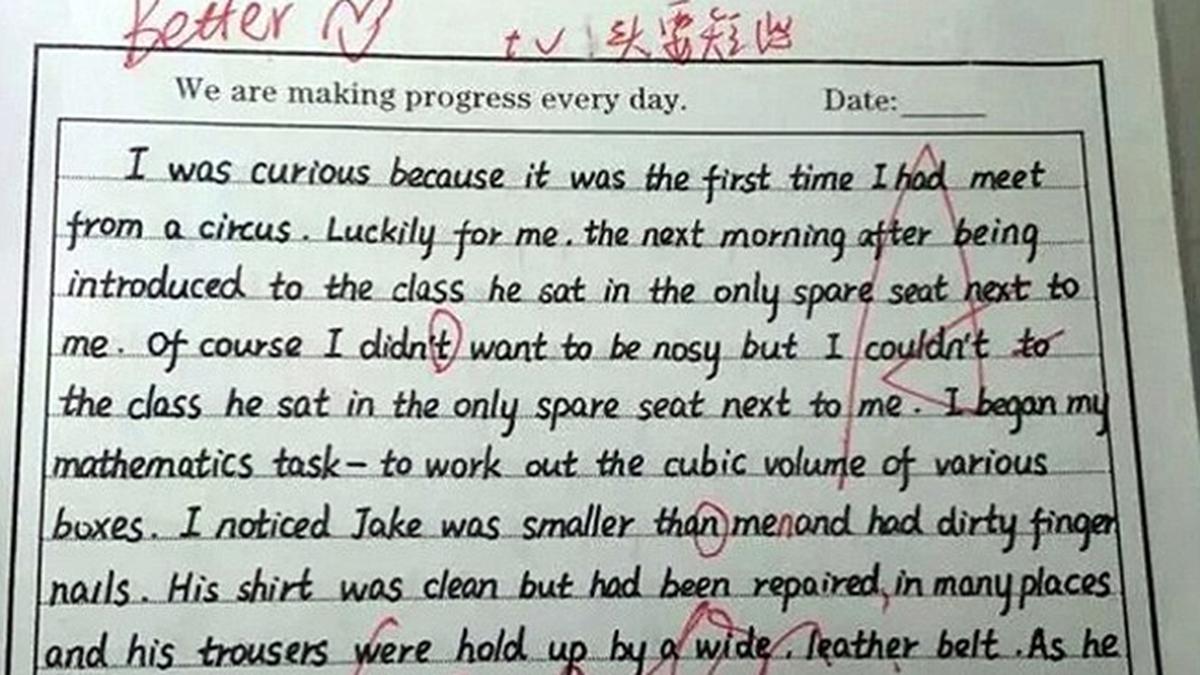 Better
t 头要短些
We are making progress every day. Date:
I was curious because it was the first time I had meet
from a circus. Luckily for me. the next morning after being
introduced to the class he sat in the only spare seat next to
me. Of course I didn't want to be nosy but I couldn't to
the class he sat in the only spare seat next to me. I began my
mathematics task- to work out the cubic volume of various
boxes. I noticed Jake was smaller than men and had dirty finger
nails. His shirt was clean but had been repaired, in many places
and his trousers were hold up by a wide. leather belt. As he